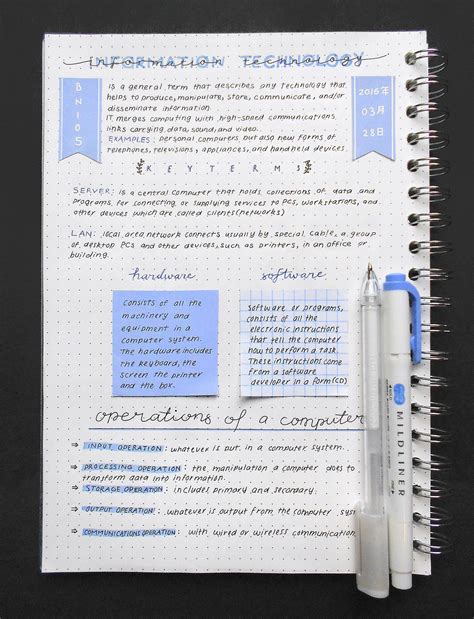 INFORMATION TECHNOLOGY
information technology
BN105
2016年
03月
28日
IS A general term that describes any technology that
helps to produce, manipulate, store, communicate, and/or
disseminate information
IT merges computing with high-speed communications
links carrying data, sound, and video.
EXAMPLES: Personal computers but also new forms of
telephones, televisions, appliances, and handheld devices
KEYTERMS
SERVER: is a central computer that holds collections of data and
programs, for connecting or supplying services to PCs, workstations, and
other devices which are called clients (networks)
LAN: local area network connects usually by special cable, a group
of desktop PCs and other devices, such as printers, in an office or
building.
hardware
Consists of all the
machinery and
equipment in a
computer system.
The hardware includes
the keyboard, the
screen the printer
and the box.
software
Software or programs,
consists of all the
electronic instructions
that tell the computer
how to perform a task.
These instructions come
from a software
developer in a form (CD)
operations of a computer
⇒ INPUT OPERATION: whatever is put in a computer system.
⇒ PROCESSING OPERATION: the manipulation a computer does to
transform data into information.
⇒ STORAGE OPERATION: includes primary and secondary.
⇒ OUTPUT OPERATION: whatever is output from the computer system
⇒ COMMUNICATIONS OPERATION: with wired or wireless communication
MILDLINER